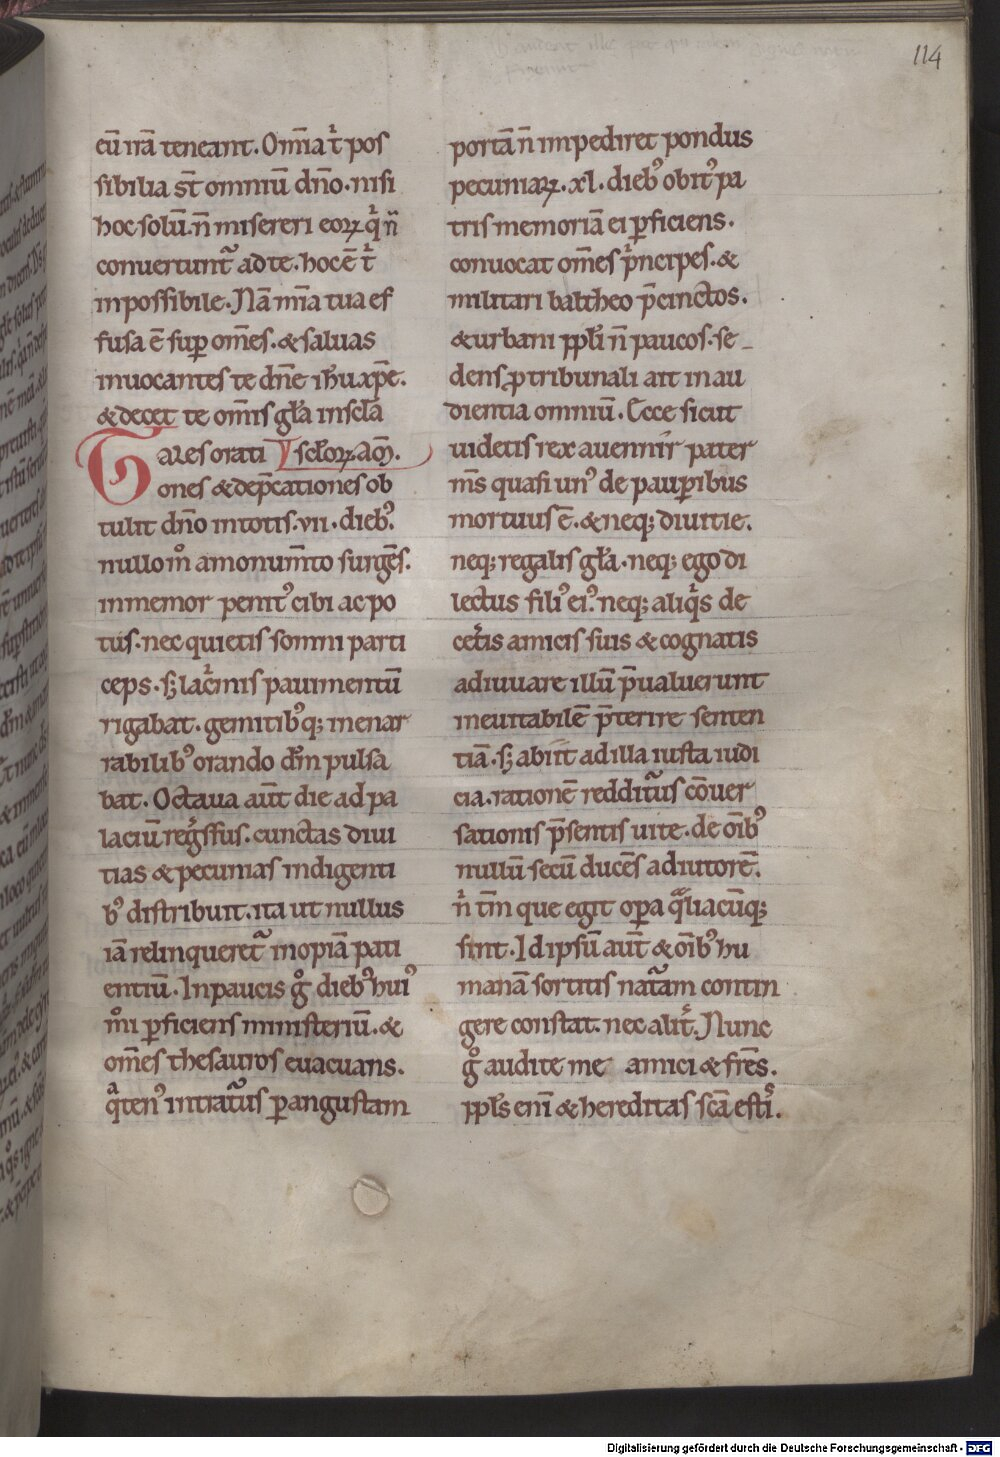 114
eū irā teneant. Om̄ia t̉ pos
sibilia st̄ omniū dn̄o. nisi
hoc solū. n̄ misereri eoꝝ q̉ n̄
conuertunt᷑ ad te. hoc ē t̉
inpossibile. Nā mīa tua ef
fusa ē suꝑ om̄es. & saluas
inuocantes te dn̄e ih̄u xp̄e.
& decet te om̄is gl̄a in scl̄a
Tales orati scl̄oꝝ. Am̄.
ones & dep̄cationes ob
tulit dn̄o in totis .vii. dieb᷒.
nullo m̊ a monum̄to surgēs.
inmemor penit᷒ cibi ac po
tus. nec quietis somni parti
ceps. sꝫ lac̉mis pauimentū
rigabat. gemitib᷒ qꝫ inenar
rabilib᷒ orando dm̄ pulsa
bat. Octaua aūt die ad pa
laciū reg̉ssus. cunctas diui
tias & pecunias indigenti
b᷒ distribuit. ita ut nullus
iā relinqueret᷑ inopiā pati
entiū. In paucis g̊ dieb᷒ hui᷒
m̊i ꝑficiens ministeriū. &
om̄es thesauros euacuans.
q̄ten᷒ intratur᷒ ꝑ angustam
portā n̄ impediret pondus
pecuniaꝝ. xl. dieb᷒ obit᷒ pa
tris memoriā ei ꝑficiens.
conuocat om̄es p̉ncipes. &
militari baltheo p̄cinctos.
& urbani ppl̄i n̄ paucos. se
dens ꝓ tribunali ait in au
dientia omniū. Ecce sicut
uidetis rex auennir pater
m̄s quasi un᷒ de pauꝑibus
mortuus ē. & neqꝫ diuitie.
neqꝫ regalis gl̄a. neqꝫ ego di
lectus fili᷒ ei᷒. neqꝫ aliq̉s de
cet̉is amicis suis & cognatis
adiuuare illū p̄ualuerunt
ineuitabilē p̄terire senten
tiā. sꝫ abiit ad illa iusta iudi
cia. rationē redditur᷒ cōuer
sationis p̄sentis uite. de oīb᷒
nullū secū ducēs adiutorē.
n̉ tm̄ que egit oꝑa q̄liacūqꝫ
sint. Id ipsū aūt & oīb᷒ hu
manā sortitis nat᷑am contin
gere constat. nec alit̉. Nunc
g̊ audite me amici & fr̄es.
ppl̄s eni & hereditas sc̄a